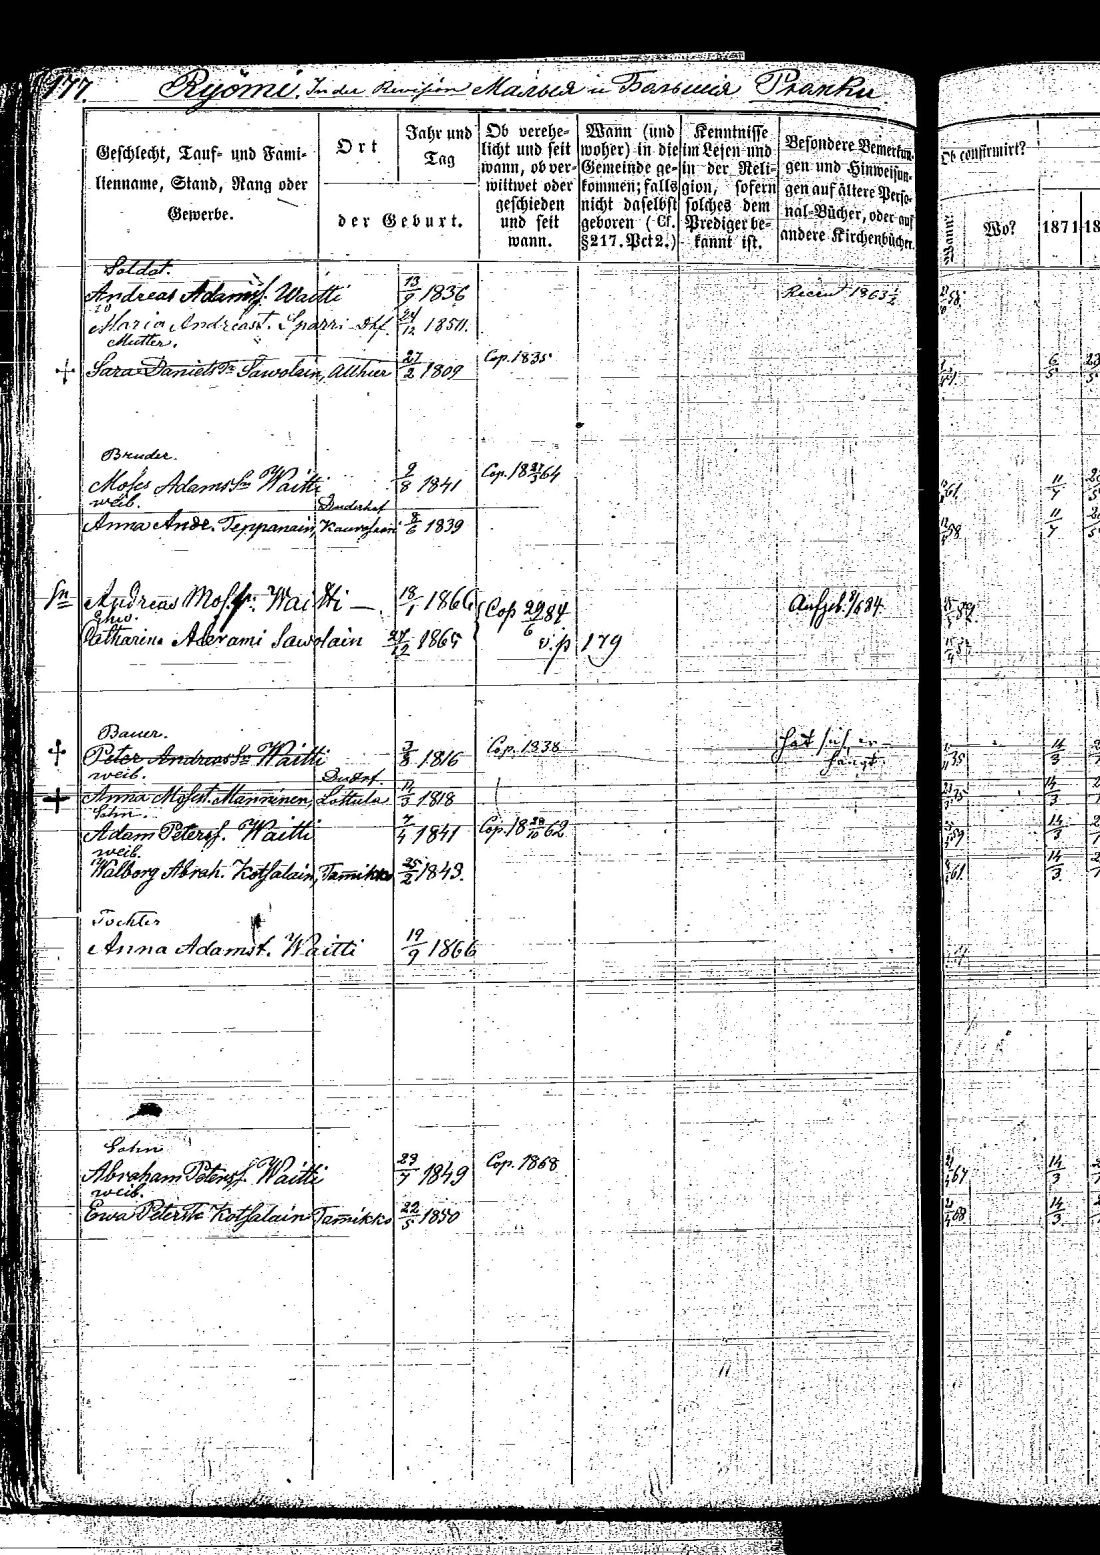 177. Ryömi. In der Revision Малыя и Большія Pranku
Geschlecht, Tauf- und Fami-
lienname, Stand, Rang oder
Gewerbe.
Ort
Jahr und
Tag
der Geburt.
Ob verehe-
licht und seit
wann, ob ver-
wittwet oder
geschieden
und seit
wann.
Wann (und
woher) in die
Gemeinde ge-
kommen; falls
nicht daselbst
geboren (Cf.
§217. Pct 2.)
Kenntnisse
im Lesen und
in der Reli-
gion, sofern
solches dem
Prediger be-
kannt ist.
Besondere Bemerkun-
gen und Hinweisun-
gen auf ältere Perso-
nal-Bücher, oder auf
andere Kirchenbücher.
Ob confirmirt?
Wann?
Wo?
1871
Soldat.
Andreas Adamss. Waitti 13/9 1836
Maria Andreast. 24/12
Mutter.
Sara Daniels Sawolain, Allhier 27/2 1809 Cop. 1835 6/5
Bruder.
Moses Adamss Waitti 2/8 1841 Cop. 18 27/3 64 61 11/7
weib. Duderhof
Anna Andr. Teppanain, 8/6 1839 58 11/7
Sn Andreas Moss. Waitti — 18/1 1866 Cop 29/6 84 Aufgeb.
Catharina Sawolain 27/12 1865 v. p 179
Bauer.
Peter Andreas Sn Waitti 3/8 1816 Cop. 1838 hat sich er- 35 14/3
hängt
weib.
Anna Mosest. Manninen, Lottula 14/3 1818 14/3
Sohn.
Adam Peterss. Waitti 7/4 1841 Cop. 18 28/10 62 59 14/3
weib.
Walborg Abrah. Kotsalain, Tamikko 25/2 1843. 61 14/3
Tochter
Anna Adamst. Waitti 19/9 1866
Sohn
Abraham Peterss. Waitti 23/7 1849 Cop. 1868 67 14/3
weib.
Ewa Peters Kotsalain Tamikko 22/5 1850 68 14/3